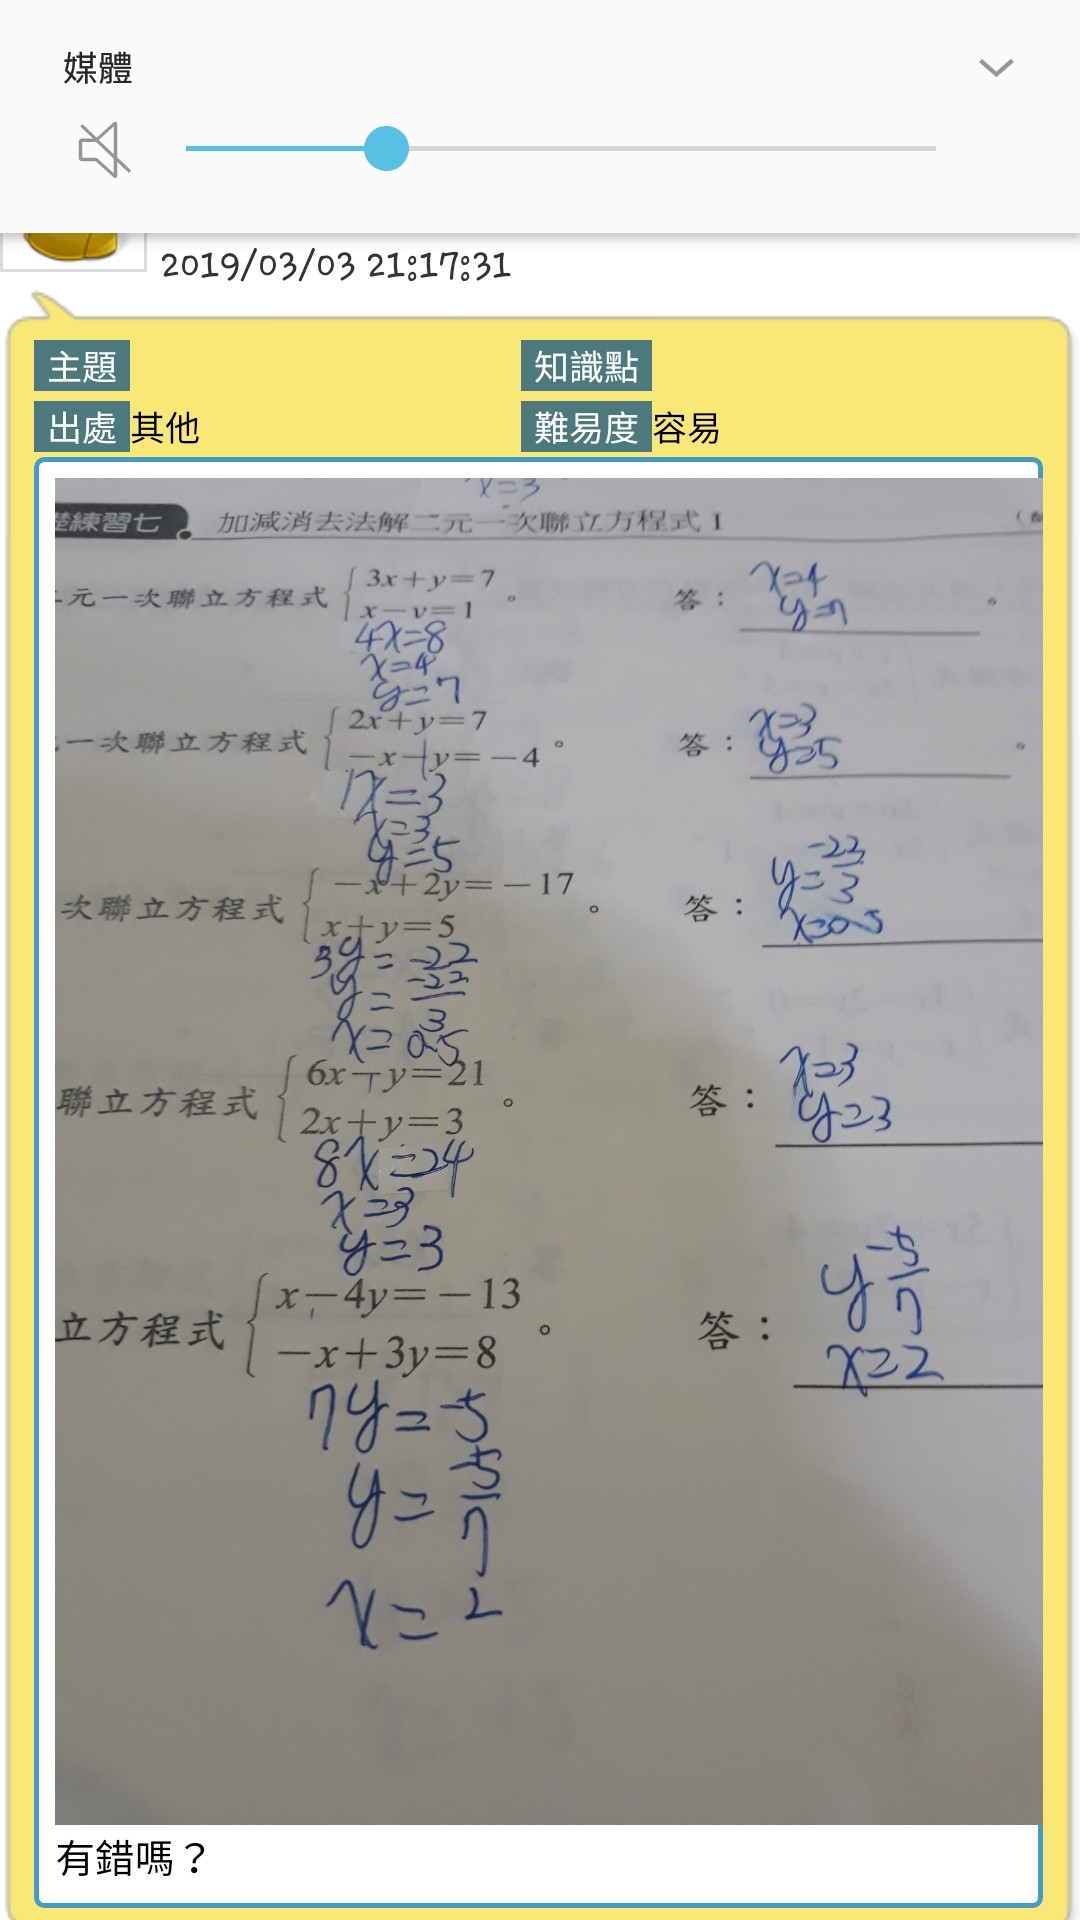 媒體
2019/03/03 21:17:31
主題
知識點
出處 其他
難易度 容易
x=3
礎練習七 加減消去法解二元一次聯立方程式 I
元一次聯立方程式 { 3x+y=7
x-y=1 。
答： x=4
y=7 。
4x=8
x=4
y=7
一次聯立方程式 { 2x+y=7
-x-y=-4 。
答： x=3
y=5 。
1x=3
x=3
y=5
次聯立方程式 { -x+2y=-17
x+y=5 。
答： y=-22/3
x=0.5
3y=-22
y=-22/3
x=0.5
聯立方程式 { 6x-y=21
2x+y=3 。
答： x=3
y=3
8x=24
x=3
y=3
立方程式 { x-4y=-13
-x+3y=8 。
答： y -5/7
x=2
7y=-5
y=-5/7
x=2
有錯嗎？